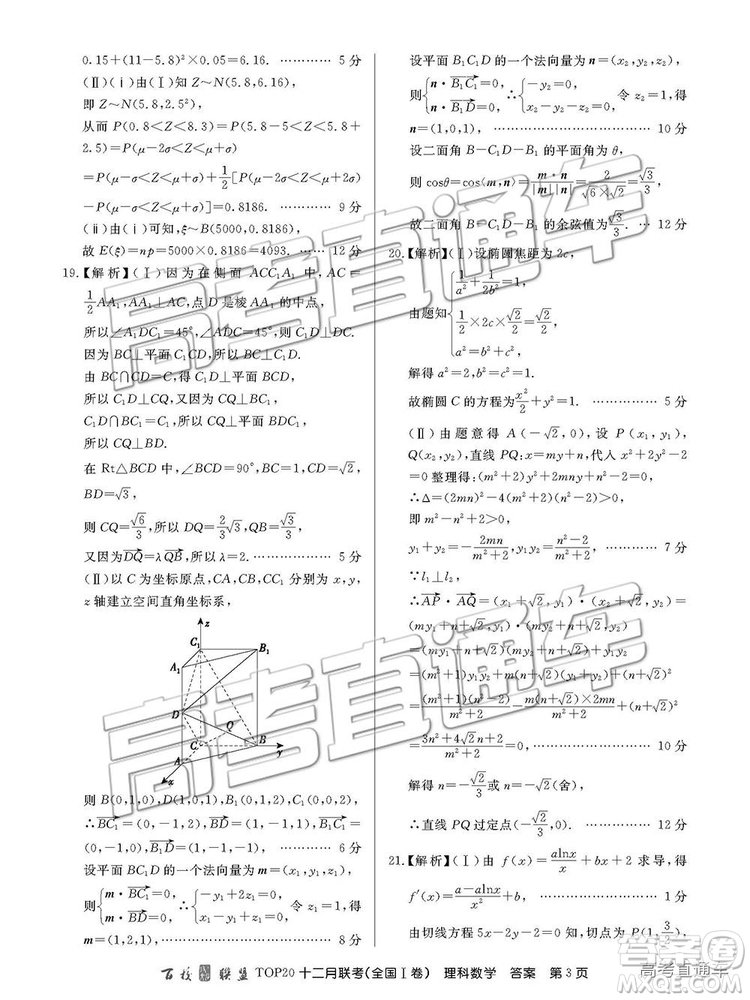 0.15+(11-5.8)²×0.05=6.16. ………… 5分
(Ⅱ)(ⅰ)由(Ⅰ)知 Z~N(5.8,6.16),
即 Z~N(5.8,2.5²),
从而 P(0.8<Z<8.3)=P(5.8-5<Z<5.8+
2.5)=P(μ-2σ<Z<μ+σ)
=P(μ-σ<Z<μ+σ)+1/2[P(μ-2σ<Z<μ+2σ)
-P(μ-σ<Z<μ+σ)]=0.8186. ………… 9分
(ⅱ)由(ⅰ)可知, ξ~B(5000,0.8186),
故 E(ξ)=np=5000×0.8186=4093. …… 12分
19.【解析】(Ⅰ)因为在侧面 ACC₁A₁ 中, AC=
1/2 AA₁, AA₁⊥AC, 点 D 是棱 AA₁ 的中点,
所以∠A₁DC₁=45°, ∠ADC=45°, 所以 C₁D⊥CD.
因为 BC⊥平面 ACC₁A₁, 所以 BC⊥C₁D.
由 BC∩CD=C, 得 C₁D⊥平面 BCD,
所以 C₁D⊥CQ, 又因为 CQ⊥BC₁,
C₁D∩BC₁=C₁, 所以 CQ⊥平面 BDC₁,
所以 CQ⊥BD.
在 Rt△BCD 中, ∠BCD=90°, BC=1, CD=√2,
BD=√3,
则 CQ=√6/3, 所以 DQ=2/3 √3, QB=√3/3,
又因为 DQ=λQB, 所以 λ=2. ………… 5分
(Ⅱ)以 C 为坐标原点, CA, CB, CC₁ 分别为 x, y,
z 轴建立空间直角坐标系,
z
C₁
B₁
A₁
D
Q
C
B
y
A
x
则 B(0,1,0), D(1,0,1), B₁(0,1,2), C₁(0,0,2),
∴BC₁=(0,-1,2), BD=(1,-1,1), B₁C₁=(0,
-1,0), B₁D=(1,-1,-1) ………… 6分
设平面 BC₁D 的一个法向量为 m=(x₁,y₁,z₁),
则{m·BC₁=0, m·BD=0, ∴{-y₁+2z₁=0, x₁-y₁+z₁=0, 令 z₁=1, 得
m=(1,2,1), ………… 8分
设平面 B₁C₁D 的一个法向量为 n=(x₂,y₂,z₂),
则{n·B₁C₁=0, n·B₁D=0, ∴{-y₂=0, x₂-y₂-z₂=0, 令 z₂=1, 得
n=(1,0,1), ………… 10分
设二面角 B-C₁D-B₁ 的平面角为 θ,
则 cosθ=cos⟨m,n⟩=|m·n|/|m||n|=2/(√6×√2)=√3/3,
故二面角 B-C₁D-B₁ 的余弦值为 √3/3. … 12分
20.【解析】(Ⅰ)设椭圆焦距为 2c,
解得 a=√2, b=c=1.
故椭圆 C 的方程为 x²/2+y²=1. ………… 5分
(Ⅱ)由题意得 A(-√2,0), 设 P(x₁,y₁),
Q(x₂,y₂), 直线 PQ: x=my+n, 代入 x²+2y²-2
=0 整理得: (m²+2)y²+2mny+n²-2=0.
∴Δ=(2mn)²-4(m²+2)(n²-2)>0,
即 m²-n²+2>0,
y₁+y₂=-2mn/(m²+2), y₁y₂=(n²-2)/(m²+2), ………… 7分
∵l₁⊥l₂,
∴AP·AQ=(x₁+√2,y₁)·(x₂+√2,y₂)=
(my₁+n+√2,y₁)·(my₂+n+√2,y₂)
=(my₁+n+√2)(my₂+n+√2)+y₁y₂
=(m²+1)y₁y₂+m(n+√2)(y₁+y₂)+(n+√2)²
=(3n²+4√2n+2)/(m²+2)=0 ………… 10分
解得 n=-√2/3 或 n=-√2(舍),
∴直线 PQ 过定点(-√2/3,0). ………… 12分
21.【解析】(Ⅰ)由 f(x)=alnx/x+bx+2 求导, 得
f′(x)=(a-alnx)/x²+b, ………… 1分
由切线方程可知, 斜率 k=0, 切点为 P(1,3/2),
百校联盟 TOP20 十二月联考(全国Ⅰ卷) 理科数学 答案 第3页
高考直通车
高考直通车
高考直通车
答案圈